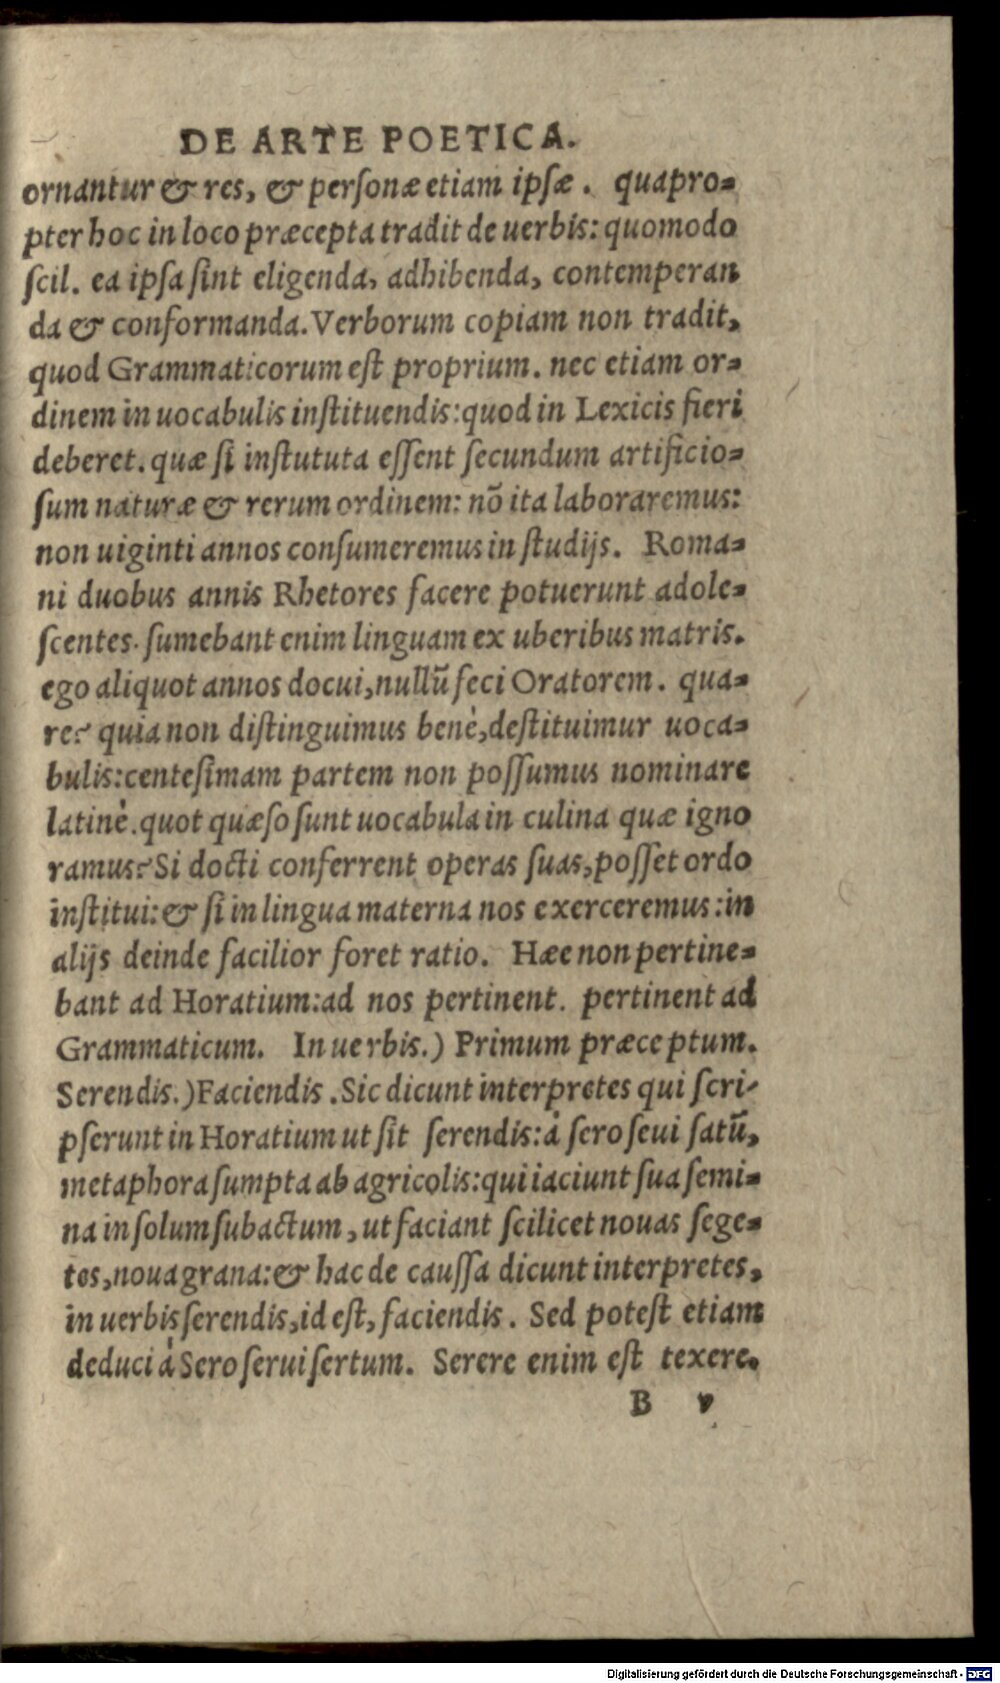 DE ARTE POETICA.
ornantur & res, & perſonæ etiam ipſæ. quapro-
pter hoc in loco præcepta tradit de uerbis: quomodo
ſcil. ea ipſa ſint eligenda, adhibenda, contemperan
da & conformanda. Verborum copiam non tradit,
quod Grammaticorum eſt proprium. nec etiam or-
dinem in uocabulis inſtituendis: quod in Lexicis fieri
deberet. quæ ſi inſtututa eſſent ſecundum artificio-
ſum naturæ & rerum ordinem: nō ita laboraremus:
non uiginti annos conſumeremus in ſtudijs. Roma-
ni duobus annis Rhetores facere potuerunt adole-
ſcentes. ſumebant enim linguam ex uberibus matris.
ego aliquot annos docui, nullū feci Oratorem. qua-
re? quia non diſtinguimus benè, deſtituimur uoca-
bulis: centeſimam partem non poſſumus nominare
latinè. quot quæſo ſunt uocabula in culina quæ igno
ramus? Si docti conferrent operas ſuas, poſſet ordo
inſtitui: & ſi in lingua materna nos exerceremus: in
alijs deinde facilior foret ratio. Hæc non pertine-
bant ad Horatium: ad nos pertinent. pertinent ad
Grammaticum. In uerbis.) Primum præceptum.
Serendis.) Faciendis. Sic dicunt interpretes qui ſcri-
pſerunt in Horatium ut ſit ſerendis: à ſero ſeui ſatū,
metaphora ſumpta ab agricolis: qui iaciunt ſua ſemi-
na in ſolum ſubactum, ut faciant ſcilicet nouas ſege-
tes, noua grana: & hac de cauſſa dicunt interpretes,
in uerbis ſerendis, id eſt, faciendis. Sed poteſt etiam
deduci à Sero ſerui ſertum. Serere enim eſt texere.
B v
Digitalisierung gefördert durch die Deutsche Forschungsgemeinschaft - DFG